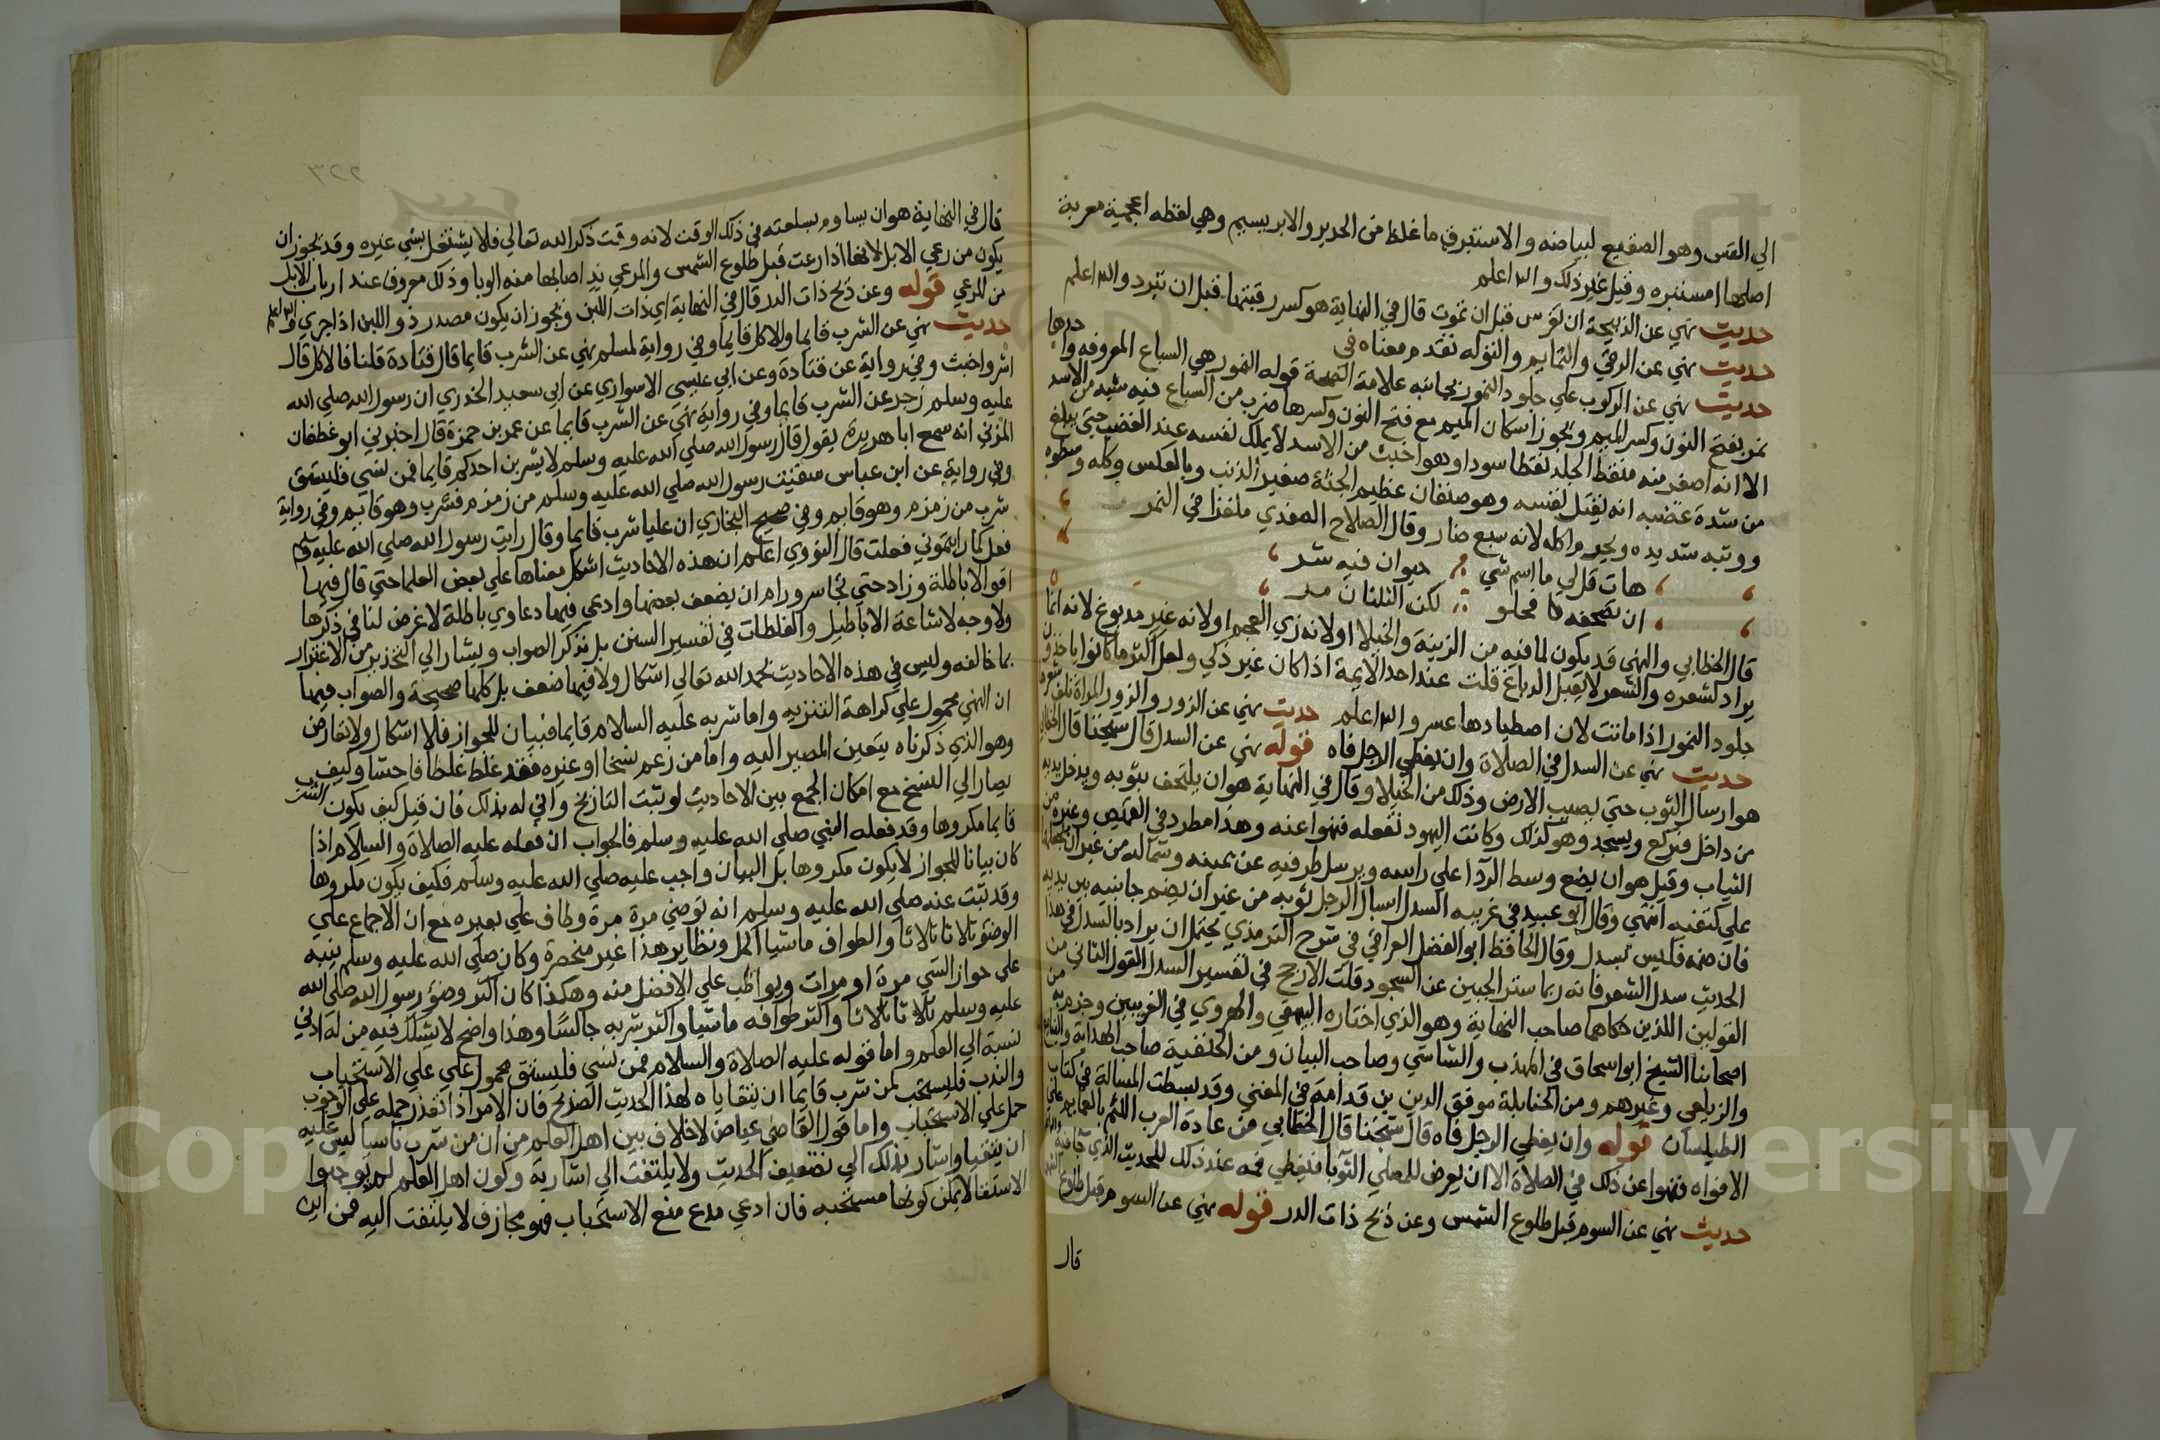 الي القس وهو الصقيع لبياضه والاستبرق ما غلظ من الحرير والابريسيم وهي لفظه اعجمية معربة
اصلها استبره وقيل غير ذلك والله اعلم
حديث نهي عن الذبيحة ان تفرس قبل ان تموت قال في النهاية هو كسر رقبتها قبل ان تبرد والله اعلم
حديث نهي عن الرقي والتمايم والتوله تقدم معناه في
حديث نهي عن الركوب علي جلود النمور بجانبه علامة الصحة قوله النمور هي السباع المعروفه واحدها
نمر بفتح النون وكسر الميم ويجوز اسكان الميم مع فتح النون وكسرها ضرب من السباع فيه شبه من الاسد
الا انه اصغر منه منقط الجلد نقطا سودا وهو اخبث من الاسد لا يملك نفسه عند الغضب حتي يبلغ
من شدة غضبه انه يقتل نفسه وهو صنفان عظيم الجثة صغير الذنب وبالعكس وكله وسطوه
ووثبه شديده ويحرم اكله لانه سبع ضار وقال الصلاح الصفدي ملغزا في النمر
هات قل لي ما اسم شي حيوان فيه شر
ان تصحفه فحلو لكن الثلثان مر
قال الخطابي والنهي قد يكون لما فيه من الزينة والخيلا او لانه زي العجم او لانه غير مدبوغ لانه انما
يراد لشعره والشعر لا يقبل الدباغ قلت عند احد الايمة اذا كان غير ذكي ولعل اكثر ما كانوا ياخذون
جلود النمور اذا ماتت لان اصطيادها عسر والله اعلم حديث نهي عن الزور والزور المراة تلف شعرها
حديث نهي عن السدل في الصلاة وان يغطي الرجل فاه قوله نهي عن السدل قال شيخنا قال الخطابي
هو ارسال الثوب حتي يصيب الارض وذلك من الخيلا وقال في النهاية هو ان يلتحف بثوبه ويدخل يديه
من داخل فيركع ويسجد وهو كذلك وكانت اليهود تفعله فنهوا عنه وهذا مطرد في القميص وغيره من
الثياب وقيل هو ان يضع وسط الردا علي راسه ويرسل طرفيه عن يمينه وشماله من غير ان يجعلهما
علي كتفيه انتهي وقال ابو عبيد في غريبه السدل اسبال الرجل ثوبه من غير ان يضم جانبيه بين يديه
فان ضمه فليس بسدل وقال الحافظ ابو الفضل العراقي في شرح الترمذي يحتمل ان يراد بالسدل في هذا
الحديث سدل الشعر فانه ربما ستر الجبين عن السجود قلت الارجح في تفسير السدل القول الثاني من
القولين اللذين حكاهما صاحب النهاية وهو الذي اختاره البيهقي والهروي في الغريبين وجزم به من
اصحابنا الشيخ ابو اسحاق في المهذب والشاشي وصاحب البيان ومن الحنفية صاحب الهداية
والزيلعي وغيرهم ومن الحنابلة موفق الدين بن قدامة في المغني وقد بسطت المسالة في كتاب
الطيلسان قوله وان يغطي الرجل فاه قال شيخنا قال الخطابي من عادة العرب اللثم بالعمايم علي
الافواه فنهوا عن ذلك في الصلاة الا ان يعرض للمصلي التوبا فيغطي فمه عند ذلك للحديث الذي
حديث نهي عن السوم قبل طلوع الشمس وعن ذبح ذات الدر قوله نهي عن السوم قبل طلوع
قال
٢٢٣
قال في النهاية هو ان يساوم بسلعته في ذلك الوقت لانه وقت ذكر الله تعالي فلا يشتغل بشي غيره وقد يجوز ان
يكون من رعي الابل لانها اذا رعت قبل طلوع الشمس والمرعي ند اصابها منه الوبا وذلك معروف عند ارباب الابل
من المرعي قوله وعن ذبح ذات الدر قال في النهاية اي ذات اللبن ويجوز ان يكون مصدر ذو اللبن اذا جري والله اعلم
حديث نهي عن الشرب قايما والاكل قايما وفي رواية لمسلم نهي عن الشرب قايما قال قتادة قلنا فالاكل قال
اشر واخبث وفي رواية عن قتادة وعن ابي عيسي الاسواري عن ابي سعيد الخدري ان رسول الله صلي الله
عليه وسلم زجر عن الشرب قايما وفي رواية نهي عن الشرب قايما عن عمر بن حمزة قال اخبرني ابو غطفان
المزني انه سمع ابا هريرة يقول قال رسول الله صلي الله عليه وسلم لا يشربن احدكم قايما فمن نسي فليستق
وفي رواية عن ابن عباس سقيت رسول الله صلي الله عليه وسلم من زمزم فشرب وهو قايم وفي رواية
شرب من زمزم وهو قايم وفي صحيح البخاري ان عليا شرب قايما وقال رايت رسول الله صلي الله عليه وسلم
فعل كما رايتموني فعلت قال النووي اعلم ان هذه الاحاديث اشكل معناها علي بعض العلما حتي قال فيها
اقوالا باطلة وزاد حتي تجاسر ورام ان يضعف بعضها وادعي فيها دعاوي باطلة لا غرض لنا في ذكرها
ولا وجه لاشاعة الاباطيل والغلطات في تفسير السنن بل نذكر الصواب ويشار الي التحذير من الاغترار
بما خالفه وليس في هذه الاحاديث بحمد الله تعالي اشكال ولا فيها ضعف بل كلها صحيحة والصواب فيها
ان النهي محمول علي كراهة التنزيه واما شربه عليه السلام قايما فبيان للجواز فلا اشكال ولا تعارض
وهو الذي ذكرناه يتعين المصير اليه واما من زعم نسخا او غيره فقد غلط غلطا فاحشا وكيف
يصار الي النسخ مع امكان الجمع بين الاحاديث لو ثبت التاريخ واني له بذلك فان قيل كيف يكون الشرب
قايما مكروها وقد فعله النبي صلي الله عليه وسلم فالجواب ان فعله عليه الصلاة والسلام اذا
كان بيانا للجواز لا يكون مكروها بل البيان واجب عليه صلي الله عليه وسلم فكيف يكون مكروها
وقد ثبت عنه صلي الله عليه وسلم انه توضي مرة مرة وطاف علي بعيره مع ان الاجماع علي
الوضو ثلاثا ثلاثا والطواف ماشيا اكمل ونظاير هذا غير منحصرة وكان صلي الله عليه وسلم ينبه
علي جواز الشي مرة او مرات ويواظب علي الافضل منه وهكذا كان اكثر وضؤ رسول الله صلي الله
عليه وسلم ثلاثا ثلاثا واكثر طوافه ماشيا واكثر شربه جالسا وهذا واضح لا يشك فيه من له ادني
نسبة الي العلم واما قوله عليه الصلاة والسلام فمن نسي فليستق محمول علي الاستحباب
والندب فليستحب لمن شرب قايما ان يتقاياه لهذا الحديث الصريح فان الامر اذا تعذر حمله علي الوجوب
حمل علي الاستحباب واما قول القاضي عياض لا خلاف بين اهل العلم من ان من شرب ناسيا ليس عليه
ان يتقيا واشار بذلك الي تضعيف الحديث ولا يلتفت الي اشاريه وكون اهل العلم لم يوجبوا
الاستقا لا يمكن كونها مستحبه فان ادعي مدع منع الاستحباب فهو مجازف لا يلتفت اليه فمن اين